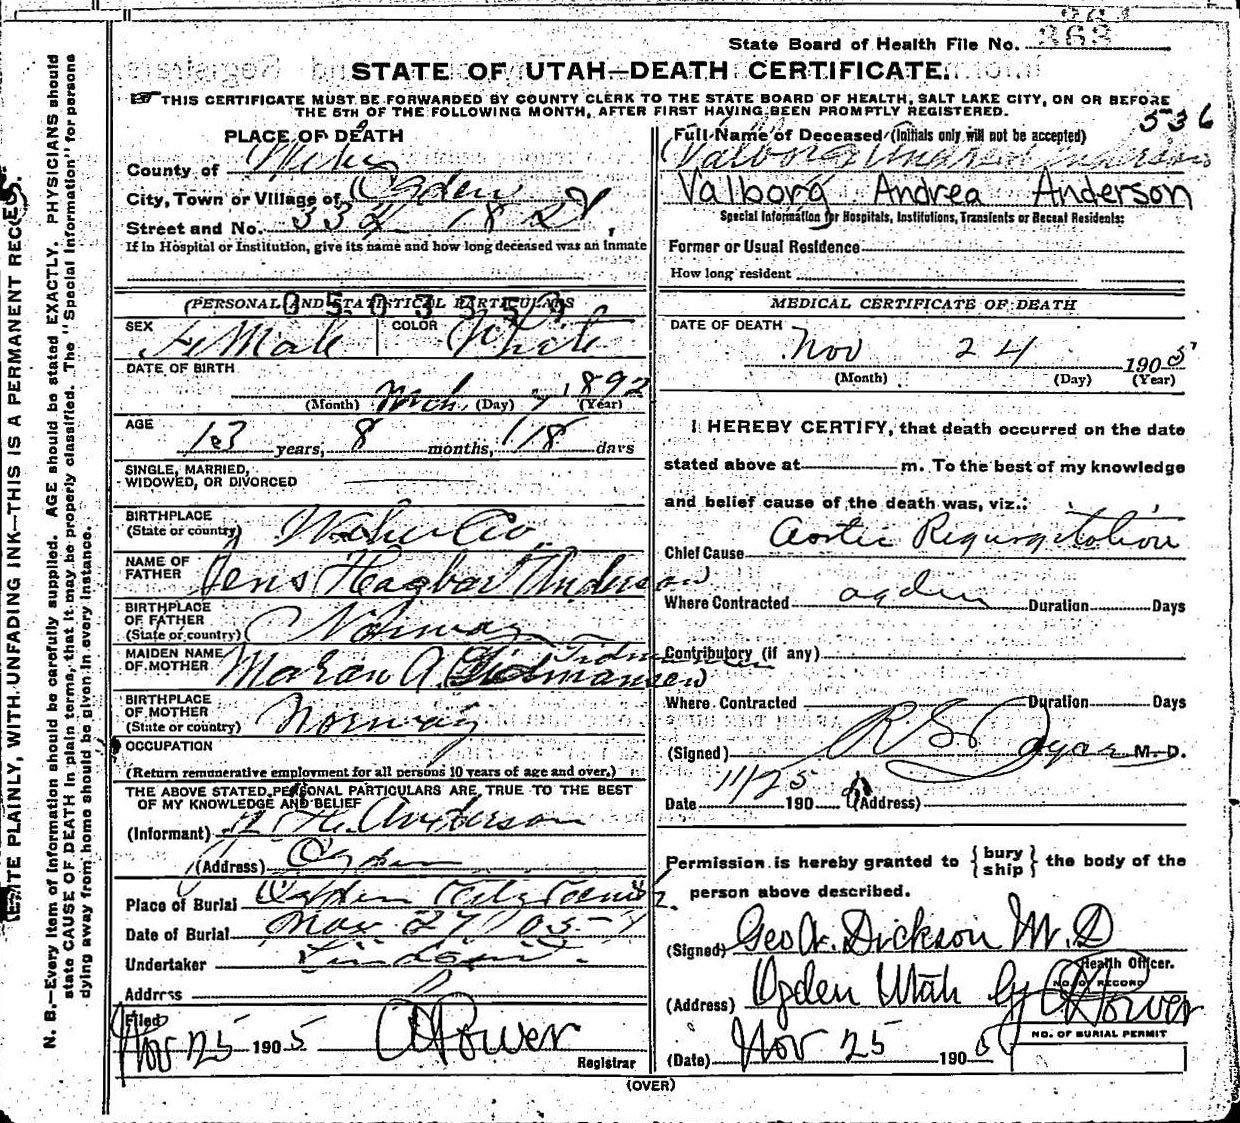 363
State Board of Health File No. 363
STATE OF UTAH—DEATH CERTIFICATE.
THIS CERTIFICATE MUST BE FORWARDED BY COUNTY CLERK TO THE STATE BOARD OF HEALTH, SALT LAKE CITY, ON OR BEFORE
THE 5TH OF THE FOLLOWING MONTH, AFTER FIRST HAVING BEEN PROMPTLY REGISTERED.
536
PLACE OF DEATH
County of Weber
City, Town or Village of Ogden
Street and No. 334 18 St
If in Hospital or Institution, give its name and how long deceased was an inmate
(PERSONAL AND STATISTICAL PARTICULARS
0503350
SEX Female COLOR White
DATE OF BIRTH
(Month) Mch (Day) 7 1892 (Year)
AGE 13 years, 8 months, 18 days
SINGLE, MARRIED,
WIDOWED, OR DIVORCED
BIRTHPLACE
(State or country) Weber Co
NAME OF
FATHER Jens Hagbar Anderson
BIRTHPLACE
OF FATHER
(State or country) Norway
MAIDEN NAME
OF MOTHER Maran A.
BIRTHPLACE
OF MOTHER
(State or country) Norway
OCCUPATION
(Return remunerative employment for all persons 10 years of age and over.)
THE ABOVE STATED PERSONAL PARTICULARS ARE TRUE TO THE BEST
OF MY KNOWLEDGE AND BELIEF
(Informant) H. Anderson
(Address) Ogden
Place of Burial Ogden City Cemet
Date of Burial Nov 27 1905
Undertaker
Address
Filed
Nov 25 1905 Power
Registrar
Full Name of Deceased (Initials only will not be accepted)
Valborg Andrea Anderson
Valborg Andrea Anderson
Special Information for Hospitals, Institutions, Transients or Recent Residents:
Former or Usual Residence
How long resident
MEDICAL CERTIFICATE OF DEATH
DATE OF DEATH
Nov 24 1905
(Month) (Day) (Year)
I HEREBY CERTIFY, that death occurred on the date
stated above at m. To the best of my knowledge
and belief cause of the death was, viz.:
Chief Cause Aortic Regurgitation
Where Contracted Ogden Duration Days
Contributory (if any)
Where Contracted Duration Days
(Signed) M. D.
Date 11/25 190 (Address)
Permission is hereby granted to { bury ship } the body of the
person above described.
(Signed) Geo. Dickson M.D
Health Officer.
NO. OF RECORD
(Address) Ogden Utah By Power
NO. OF BURIAL PERMIT
(Date) Nov 25 1905
(OVER)
WRITE PLAINLY, WITH UNFADING INK—THIS IS A PERMANENT RECORD.
N. B.—Every item of information should be carefully supplied. AGE should be stated EXACTLY. PHYSICIANS should
state CAUSE OF DEATH in plain terms, that it may be properly classified. The "Special Information" for persons
dying away from home should be given in every instance.